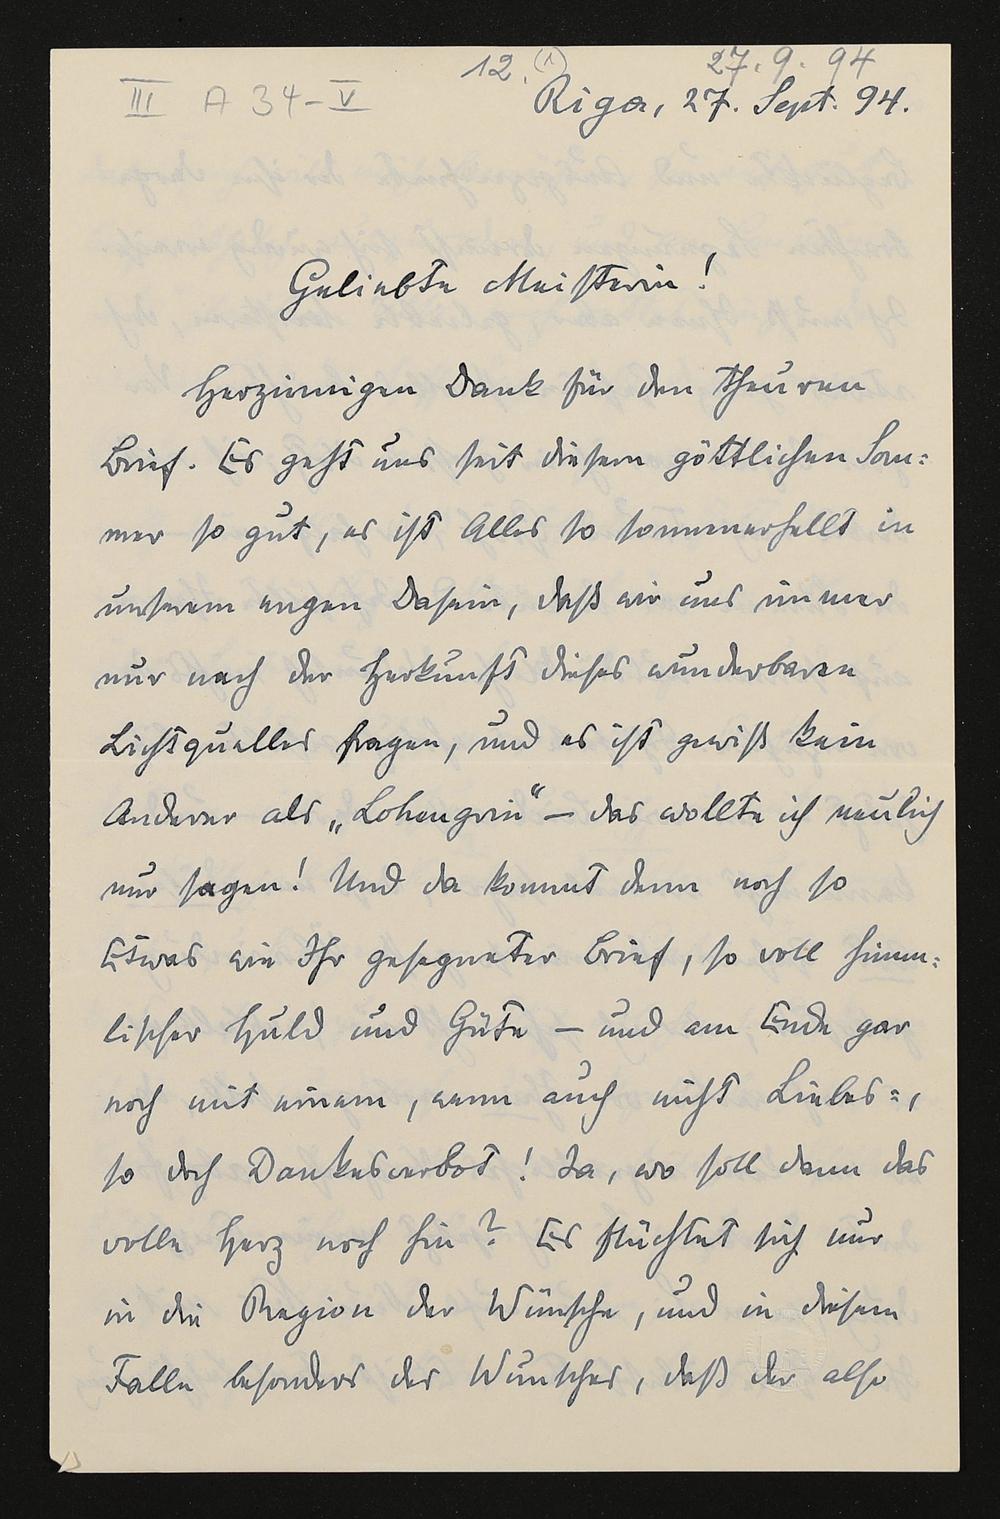 12. (1) 27.9.94
III A 34-V
Riga, 27. Sept. 94.
Geliebte Meisterin!
Herzinnigen Dank für den theuren
Brief. Es geht uns seit diesem göttlichen Som=
mer so gut, es ist Alles so sonnenerhellt in
unserem engen Dasein, daß wir uns immer
nur nach der Herkunft dieses wunderbaren
Lichtquelles fragen, und es ist gewiß kein
Anderer als „Lohengrin“ – das wollte ich neulich
nur sagen! Und da kommt denn noch so
Etwas wie Ihr gesegneter Brief, so voll himm=
lischer Huld und Güte – und am Ende gar
noch mit einem, wenn auch nicht Liebes=,
so doch Dankesverbot! Ja, wo soll denn das
volle Herz noch hin? Es flüchtet sich nur
in die Region der Wünsche, und in diesem
Falle besonders des Wunsches, daß der also